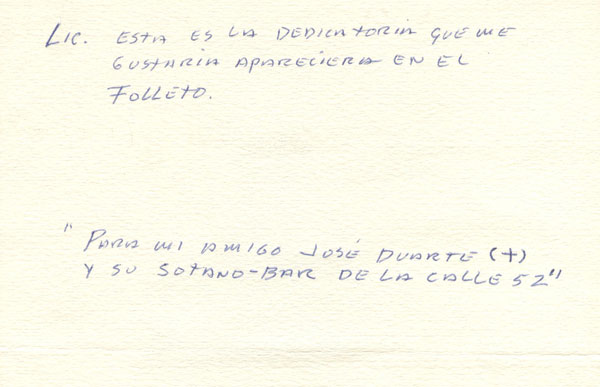 LIC. ESTA ES LA DEDICATORIA QUE ME
GUSTARIA APARECIERA EN EL
FOLLETO.
"PARA MI AMIGO JOSÉ DUARTE (+)
Y SU SOTANO-BAR DE LA CALLE 52"